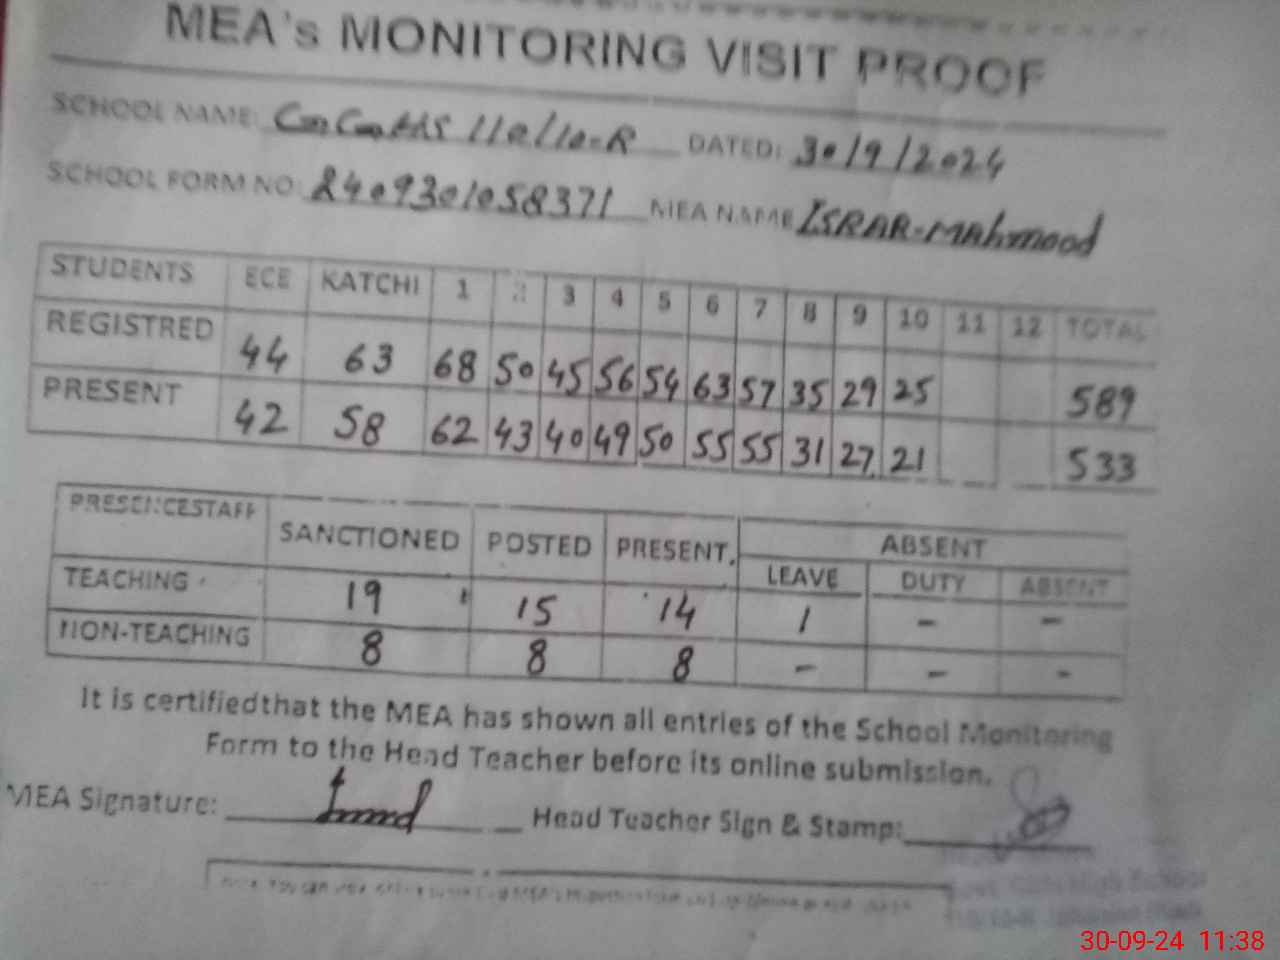 MEA's MONITORING VISIT PROOF
SCHOOL NAME: 110/10-R DATED: 30/9/2024
SCHOOL FORM NO: 2409301058371 MEA NAME ISRAR-MAhmood
STUDENTS ECE KATCHI 1 2 3 4 5 6 7 8 9 10 11 12 TOTAL
REGISTRED 44 63 68 50 45 56 54 63 57 35 29 25 589
PRESENT 42 58 62 43 40 49 50 55 55 31 27 21 533
PRESENCESTAFF SANCTIONED POSTED PRESENT. ABSENT
LEAVE DUTY ABSENT
TEACHING 19 15 14 1 - -
NON-TEACHING 8 8 8 - - -
It is certifiedthat the MEA has shown all entries of the School Monitoring
Form to the Head Teacher before its online submission.
MEA Signature: Head Teacher Sign & Stamp:
High School
30-09-24 11:38